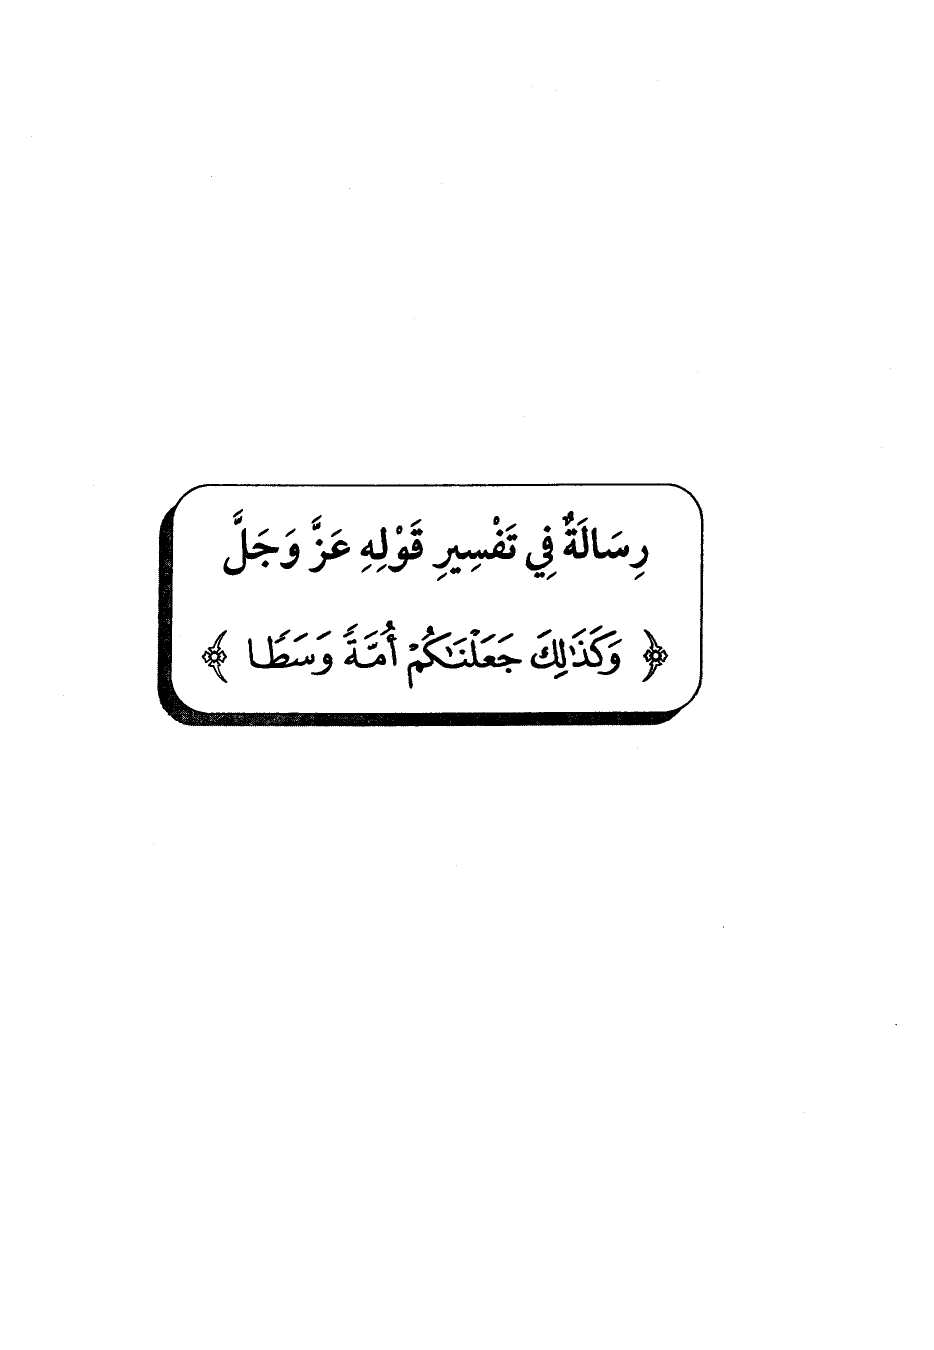 رِسَالَةٌ فِي تَفْسِيرِ قَوْلِهِ عَزَّ وَجَلَّ
﴿ وَكَذَٰلِكَ جَعَلْنَـٰكُمْ أُمَّةً وَسَطًا ﴾